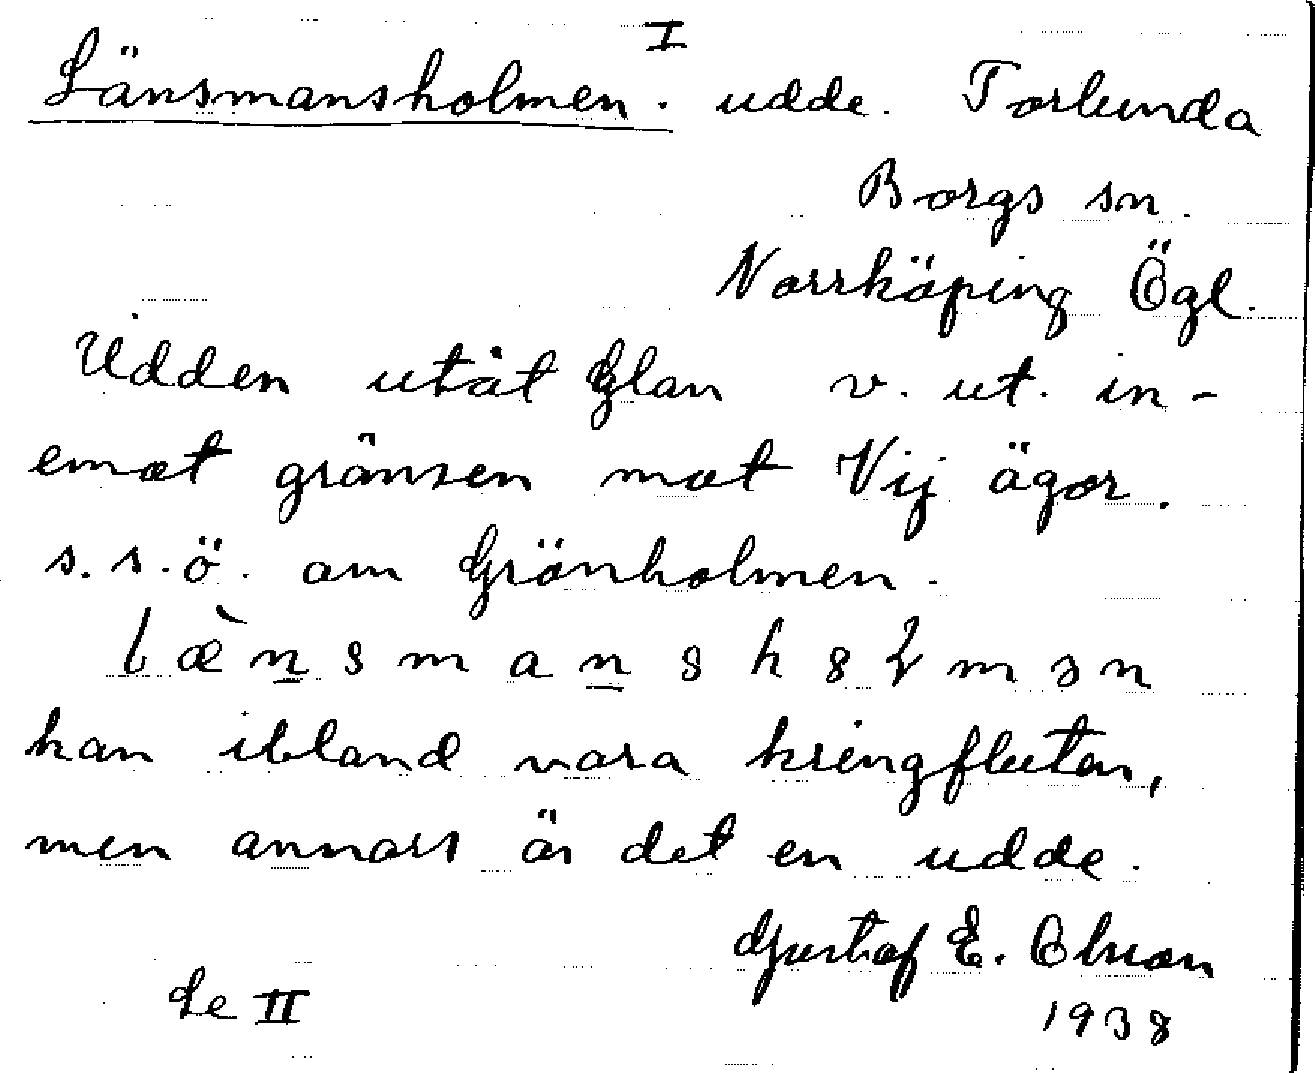 I
Länsmansholmen. udde. Torlunda
Borgs sn.
Norrköping Ögl.
Udden utåt Glan v. ut. in-
emot gränsen mot Vij ägor.
s.s.ö. om Grönholmen.
kan ibland vara kringfluten,
men annars är det en udde.
Gustaf E. Olsson
Se II
1938